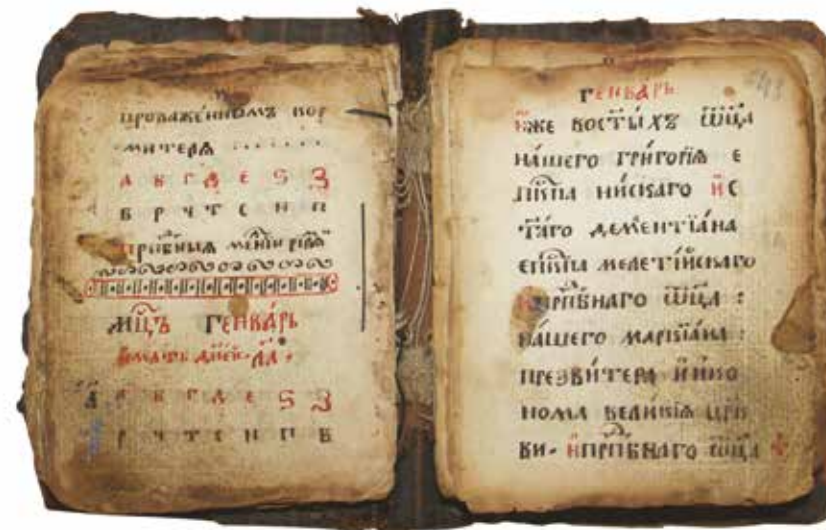 прокаженномъ кор
митеря
а в г д е ѕ з
в р ч т с н п
Мц҃ъ Генва́рь
и́мать дне́й л҃а
а҃ а в г д е ѕ з
р ч т с н п в
Генва́рь
и́же во ст҃ы́хъ ѻ҆ц҃а̀
на́шего григо́рїа е
пкⷭ҇па ни́скаго и҆ с
т҃а́го деменътїа́на
епкⷭ҇па мелетї́йскаго
и҆ прпⷣбнаго ѻ҆ц҃а̀ :
на́шего маркїа́на :
презви́тера и҆ и҆ко
нома вели́кїа цр҃к
ви. и҆ прпⷣбнаго ѻ҆ц҃а̀